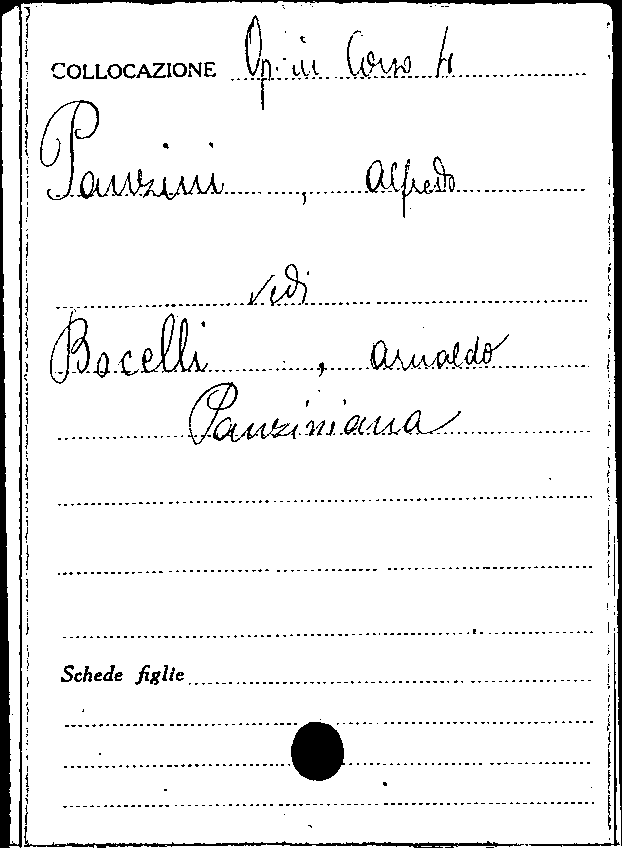 COLLOCAZIONE Op. in Corso 4
Panzini, Alfredo
vedi
Bocelli, Arnaldo
Panziniana
Schede figlie